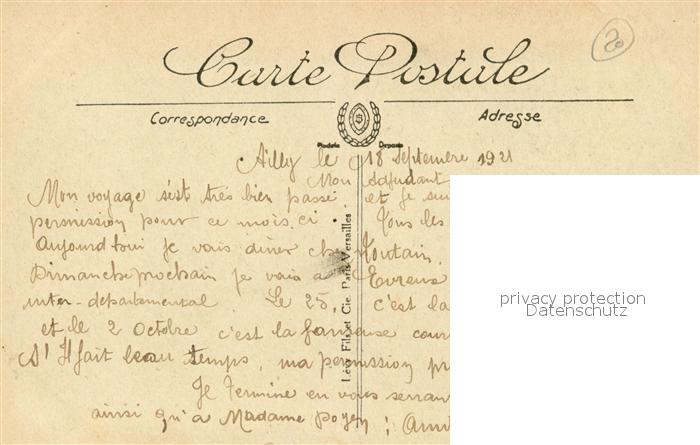 20
Carte Postale
Correspondance
Adresse
Modèle Déposé
Ailly le 18 Septembre 1921
Mon adjudant
Mon voyage s'est très bien passé et je sui
permission pour ce mois ci. Tous les
Aujourd'hui je vais diner che Moutain.
Dimanche prochain je vais a Evreux
inter-départemental. Le 25, c'est la
et le 2 Octobre c'est la fameuse cour
S'Il fait beau temps, ma permission pr
Je termine en vous serran
ainsi qu'a Madame Doyen ; Ami
Lévy Fils et Cie, Paris-Versailles
privacy protection
Datenschutz